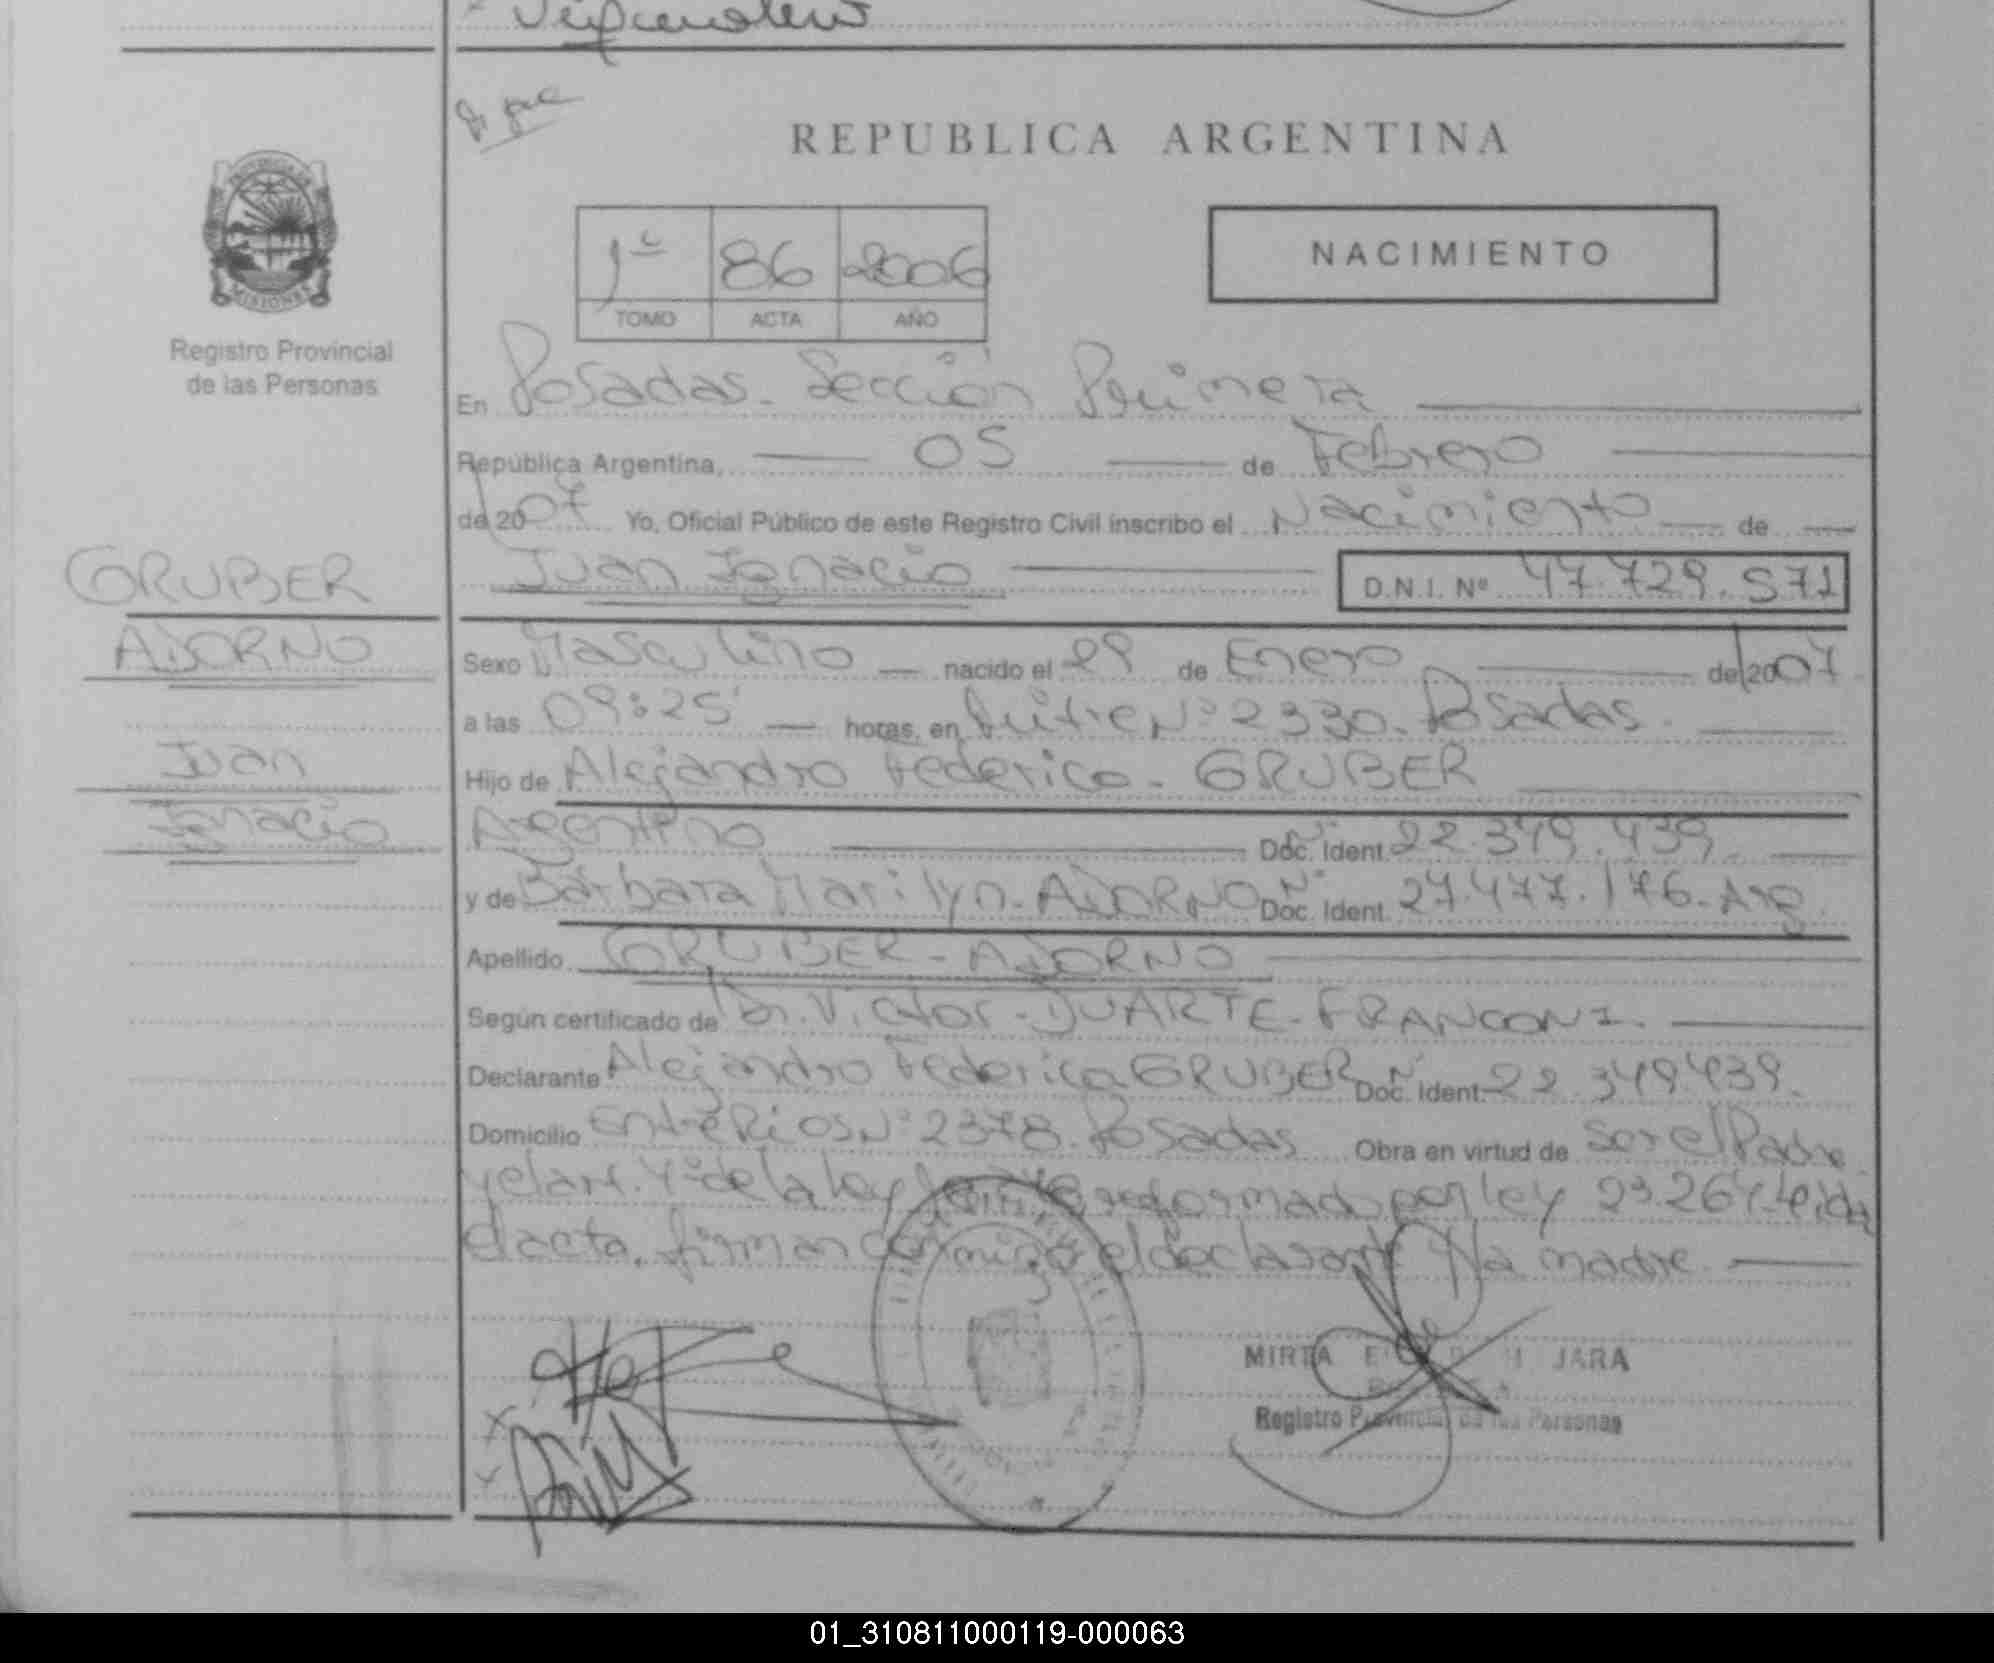 REPUBLICA ARGENTINA
PROVINCIA DE
MISIONES
Registro Provincial
de las Personas
1º 86 2006
TOMO ACTA AÑO
NACIMIENTO
En Posadas. Sección Primera
República Argentina, 05 de Febrero
de 2007 Yo, Oficial Público de este Registro Civil inscribo el Nacimiento de
Juan Ignacio D.N.I. Nº 47.729.571
GRUBER
AJORNO
Juan
Ignacio
Sexo Masculino nacido el 29 de Enero de 2007
a las 09:25' horas, en Nº 2330. Posadas
Hijo de Alejandro Federico - GRUBER
Argentino Doc. Ident. Nº 22.349.439.
y de Bárbara Marilyn. AJORNO Doc. Ident. Nº 27.477.176 - Arg.
Apellido GRUBER - AJORNO
Según certificado de Dr. Victor - DUARTE - FRANCONI.
Declarante Alejandro Federico GRUBER Doc. Ident. Nº 22.349.439.
Domicilio Entre Rios Nº 2378. Posadas Obra en virtud de ser el Padre
y el art. 4º de la ley reformado por ley 23.264. Leida
el acta, firman conmigo el declarante y la madre
MIRTA JARA
Registro Provincial de las Personas
01_310811000119-000063